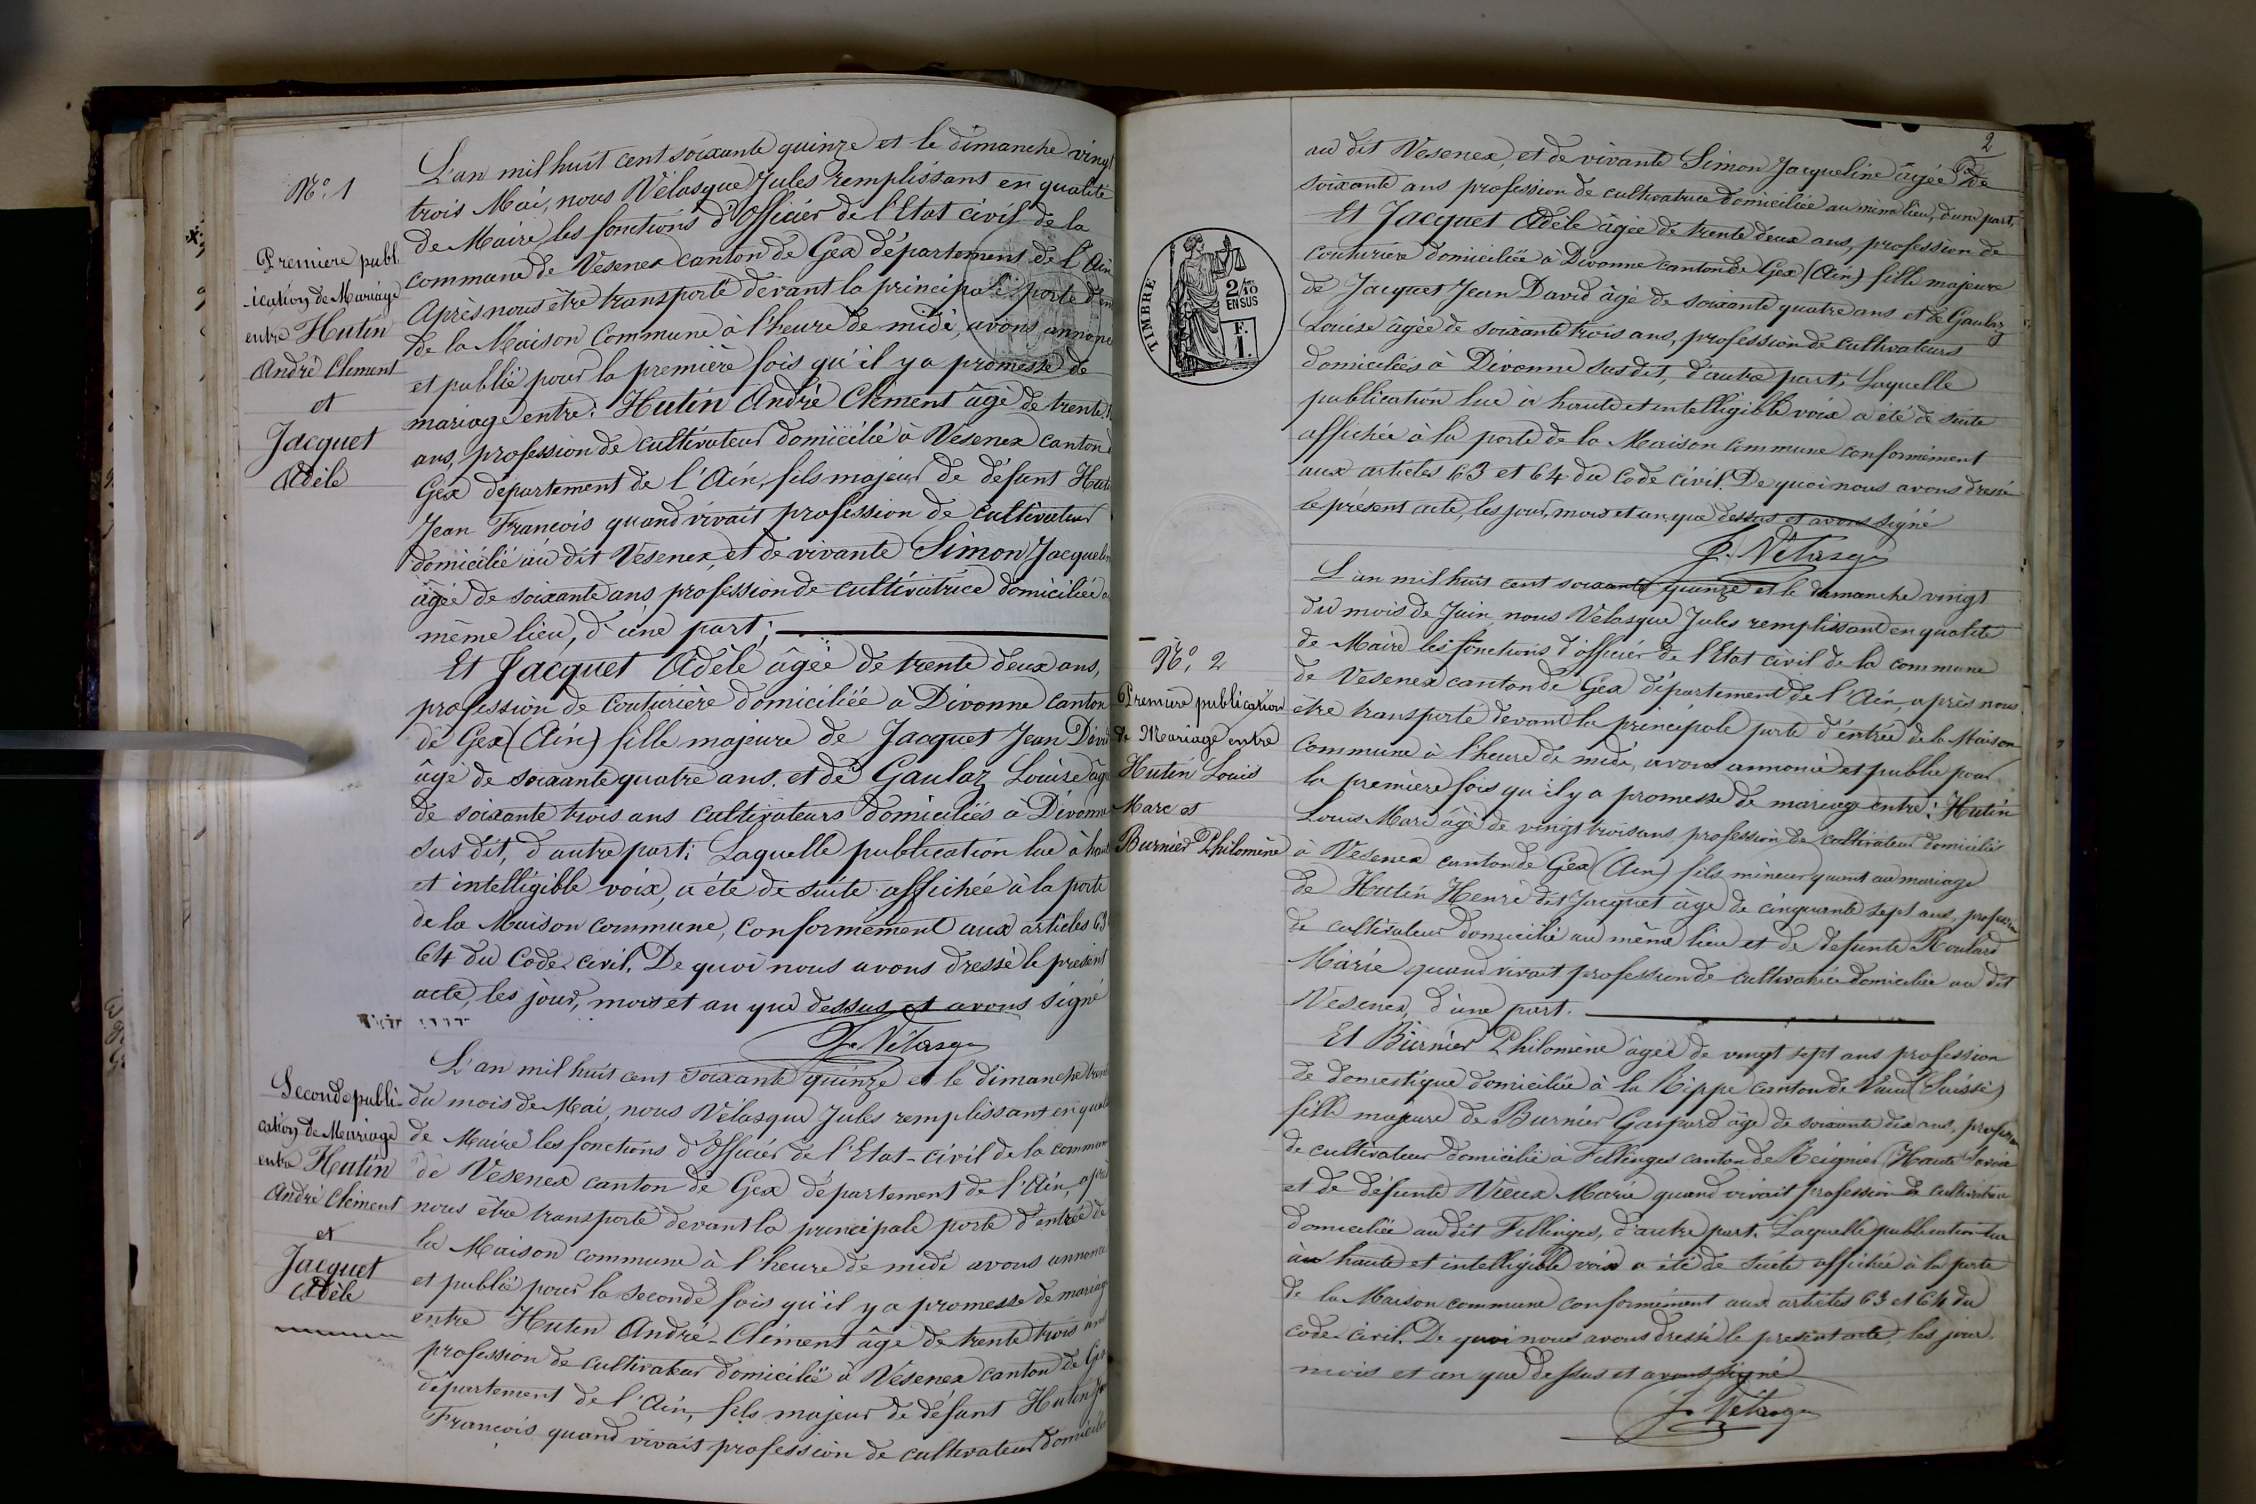 N.º 1
Premiere publ.
ication de Mariage
entre Hutin
André Clement
et
Jacquet
Adèle
L'an mil huit cent soixante quinze et le dimanche vingt
trois Mai, nous Vélasque Jules remplissant en qualité
de Maire, les fonctions d'Officier de l'Etat civil de la
commune de Vesenex canton de Gex département de l'Ain
Après nous être transporté devant la principale porte
de la Maison Commune à l'heure de midi, avons annoncé
et publié pour la première fois qu'il y a promesse de
mariage entre: Hutin André Clément âgé de trente
ans, profession de cultivateur domicilié à Vésenex canton
Gex département de l'Ain, fils majeur de défunt Hutin
Jean François quand vivait profession de cultivateur
domicilié au dit Vesenex, et de vivante Simon Jacqueline
âgée de soixante ans profession de cultivatrice domiciliée
même lieu, d'une part;
Et Jacquet Adèle âgée de trente deux ans,
profession de couturière domiciliée à Divonne canton
de Gex (Ain) fille majeure de Jacquet Jean David
âgé de soixante quatre ans et de Gaulaz Louise âgé
de soixante trois ans cultivateurs domiciliés à Divonne
sus dit, d'autre part; Laquelle publication lue à haute
et intelligible voix, a été de suite affichée à la porte
de la Maison commune, conformément aux articles 63
64 du Code civil. De quoi nous avons dressé le présent
acte, les jour, mois et an que dessus et avons signé
J. Vélasque
Seconde publi-
cation de Mariage
entre Hutin
André Clément
et
Jacquet
Adèle
L'an mil huit cent soixante quinze et le dimanche trente
du mois de Mai, nous Vélasque Jules remplissant en qualité
de Maire les fonctions d'Officier de l'Etat-civil de la commune
de Vesenex canton de Gex département de l'Ain, après
nous être transporté devant la principale porte d'entrée de
la Maison commune à l'heure de midi avons annoncé
et publié pour la seconde fois qu'il y a promesse de mariage
entre Hutin André-Clément âgé de trente trois ans
profession de cultivateur domicilié à Vesenex canton de Gex
département de l'Ain, fils majeur de défunt Hutin Jean
François quand vivait profession de cultivateur domicilié
2
au dit Vesenex, et de vivante Simon Jacqueline âgée de
soixante ans profession de cultivatrice domiciliée au même lieu, d'une part;
Et Jacquet Adèle âgée de trente deux ans, profession de
couturière domiciliée à Divonne canton de Gex (Ain) fille majeure
de Jacquet Jean David âgé de soixante quatre ans et de Gaulaz
Louise âgée de soixante trois ans, profession de cultivateurs
domiciliés à Divonne sus dit, d'autre part; Laquelle
publication lue à haute et intelligible voix a été de suite
affichée à la porte de la Maison commune conformément
aux articles 63 et 64 du Code civil. De quoi nous avons dressé
le présent acte, les jour, mois et an que dessus et avons signé
J. Vélasque
TIMBRE
2/10
EN SUS
F.
1.
N.º 2
Premiere publication
de Mariage entre
Hutin Louis
Marc et
Burnier Philomène
L'an mil huit cent soixante quinze et le dimanche vingt
du mois de Juin, nous Vélasque Jules remplissant en qualité
de Maire les fonctions d'officier de l'Etat civil de la commune
de Vesenex canton de Gex département de l'Ain, après nous
être transporté devant la principale porte d'entrée de la Maison
Commune à l'heure de midi, avons annoncé et publié pour
la première fois qu'il y a promesse de mariage entre: Hutin
Louis Marc âgé de vingt trois ans profession de cultivateur domicilié
à Vesenex canton de Gex (Ain) fils mineur quant au mariage
de Hutin Henri dit Jacquet âgé de cinquante sept ans, profession
de cultivateur domicilié au même lieu et de défunte Roulard
Marie quand vivait profession de cultivatrice domiciliée au dit
Vesenex, d'une part.
Et Burnier Philomène âgée de vingt sept ans profession
de domestique domiciliée à la Rippe canton de Vaud (Suisse)
fille majeure de Burnier Gaspard âgé de soixante dix ans, profession
de cultivateur domicilié à Fillinges canton de Reignier (Haute Savoie
et de défunte Vieux Marie quand vivait profession de cultivatrice
domiciliée au dit Fillinges, d'autre part. Laquelle publication lue
à haute et intelligible voix a été de suite affichée à la porte
de la Maison commune conformément aux articles 63 et 64 du
code civil. De quoi nous avons dressé le présent acte, les jour,
mois et an que dessus et avons signé
J. Vélasque